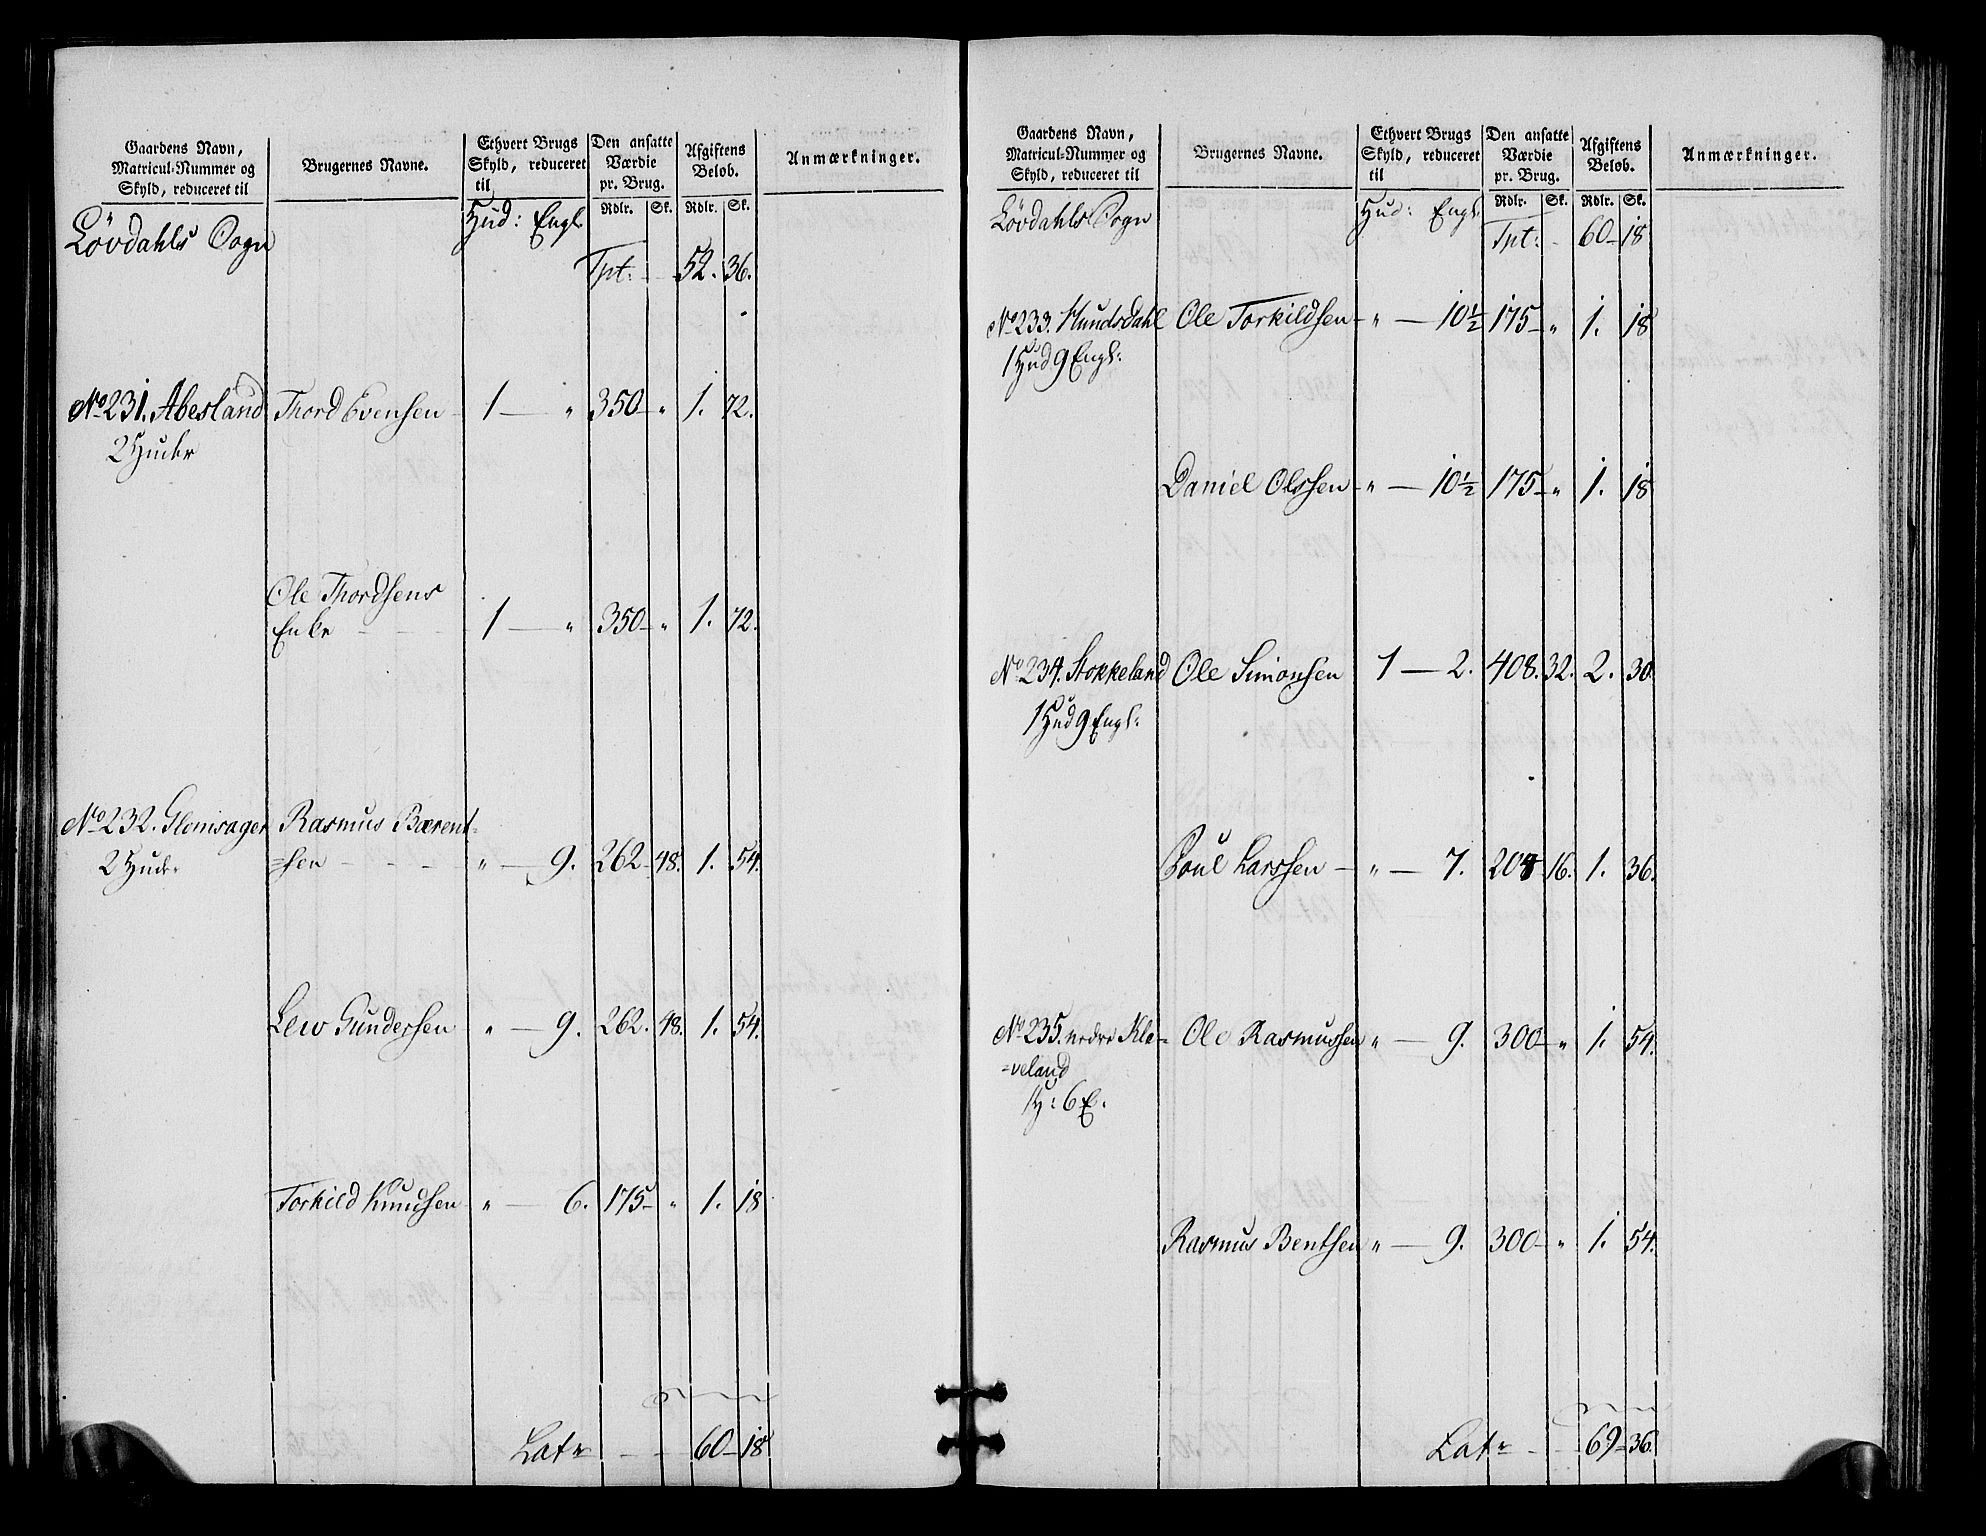 Gaardens Navn,
Matricul-Nummer og
Skyld, reduceret til
Brugernes Navne.
Ethvert Brugs
Skyld, reduceret
til
Den ansatte
Værdie
pr. Brug.
Afgiftens
Beløb.
Anmærkninger.
Rdlr. Sk. Rdlr. Sk.
Lövdahls Sogn Hud: Engl.
Tpt: 52. 36.
No 231. Abesland Thord Evensen 1 — " 350 — " 1. 72.
2 Huder
Ole Thordsens
Enke — — 1 — " 350 — " 1. 72.
No 232. Glomsager Rasmus Bærent=
2 Huder =sen — — " — 9. 262 48. 1. 54.
Lew Gundersen " — 9. 262. 48. 1. 54.
Torkild Knudsen " — 6. 175 — " 1. 18
Lat. — — 60 — 18
Gaardens Navn,
Matricul-Nummer og
Skyld, reduceret til
Brugernes Navne.
Ethvert Brugs
Skyld, reduceret
til
Den ansatte
Værdie
pr. Brug.
Afgiftens
Beløb.
Anmærkninger.
Rdlr. Sk. Rdlr. Sk.
Lövdahls Sogn Hud: Engl.
Tpt: 60 — 18
No 233. Hundsdahl Ole Torkildsen — " — 10½ 175 — " 1. 18
1 Hud 9 Engl:
Daniel Olssen — " — 10½ 175 — " 1. 18
No 234. Stokkeland Ole Simonsen 1 — 2. 408. 32. 2. 30.
1 Hud 9 Engl:
Poul Larssen — " — 7. 204 16. 1. 36.
No 235. nedre Kle= Ole Rasmussen " — 9. 300 — " 1. 54.
=veland
1 H: 6 E.
Rasmus Bentsen " — 9. 300 — " 1. 54.
Lat. — — 69 — 36.